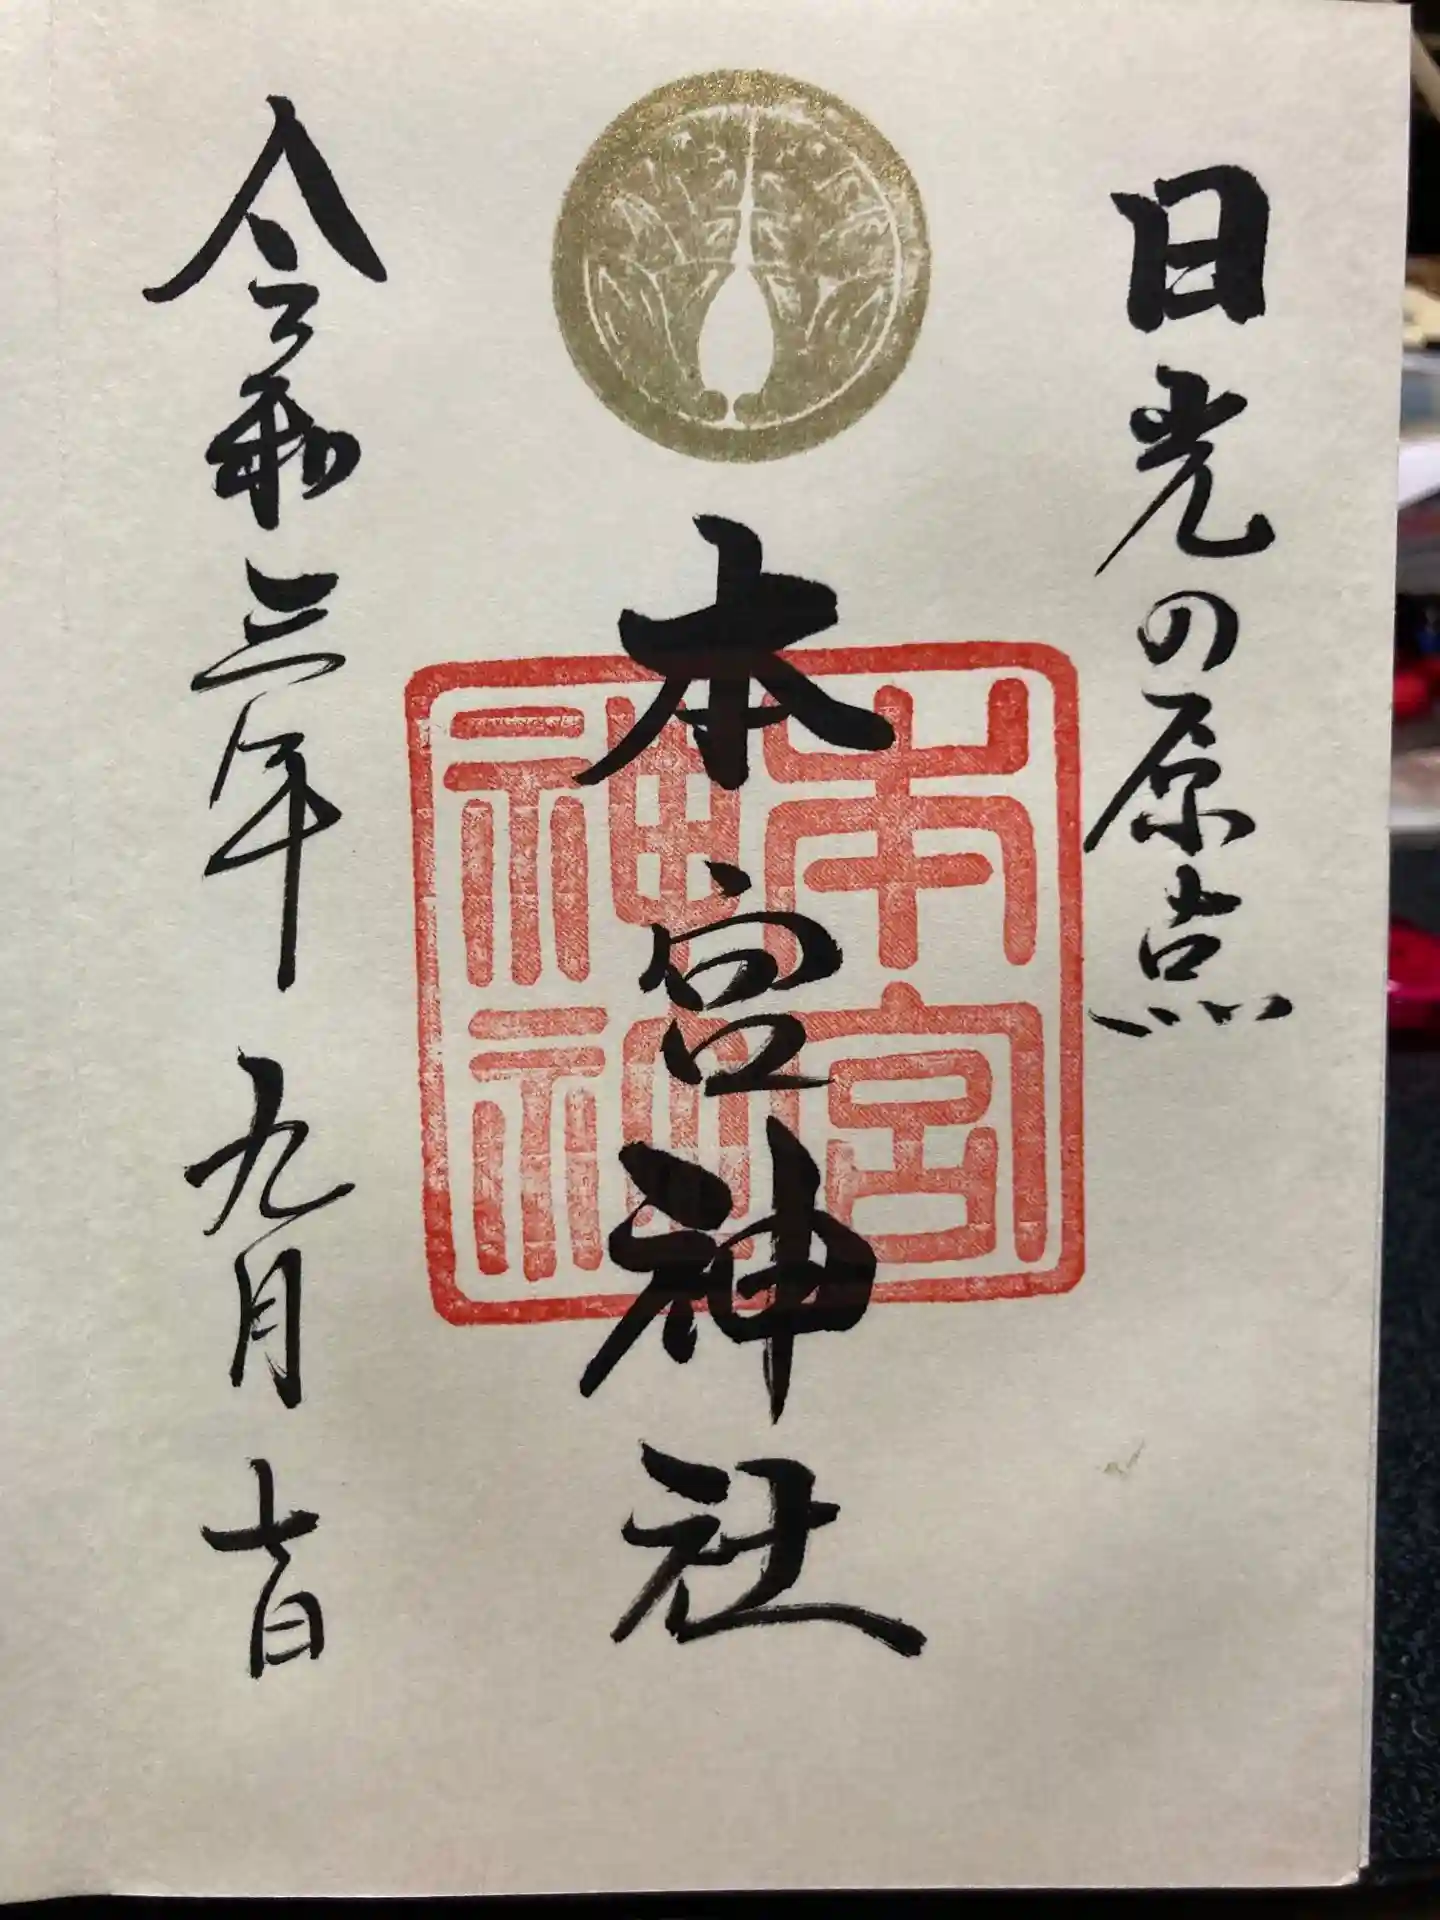 日光の原点
本宮神社
本宮神社
令和三年九月七日